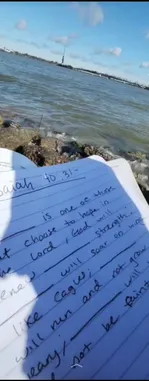 Isaiah 40 31-
is one of whom
choose to hope in
the Lord, God will
renew strength.
will soar on wings
like Eagles,
will run and not grow
weary, will
not be faint